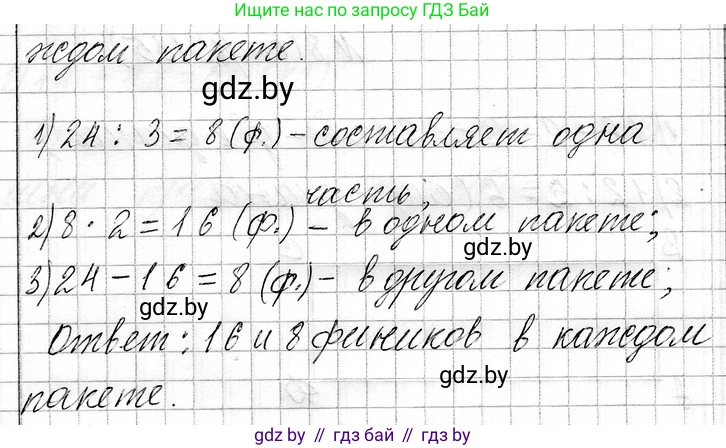 Ищите нас по запросу ГДЗ Бай
ждом пакете.
gdz.by
1) 24 : 3 = 8 (ф.) – составляет одна
часть;
2) 8 · 2 = 16 (ф.) – в одном пакете;
gdz.by
3) 24 – 16 = 8 (ф.) – в другом пакете;
gdz.by
Ответ: 16 и 8 фиников в каждом
gdz.by
пакете.
gdz.by // гдз бай // gdz.by